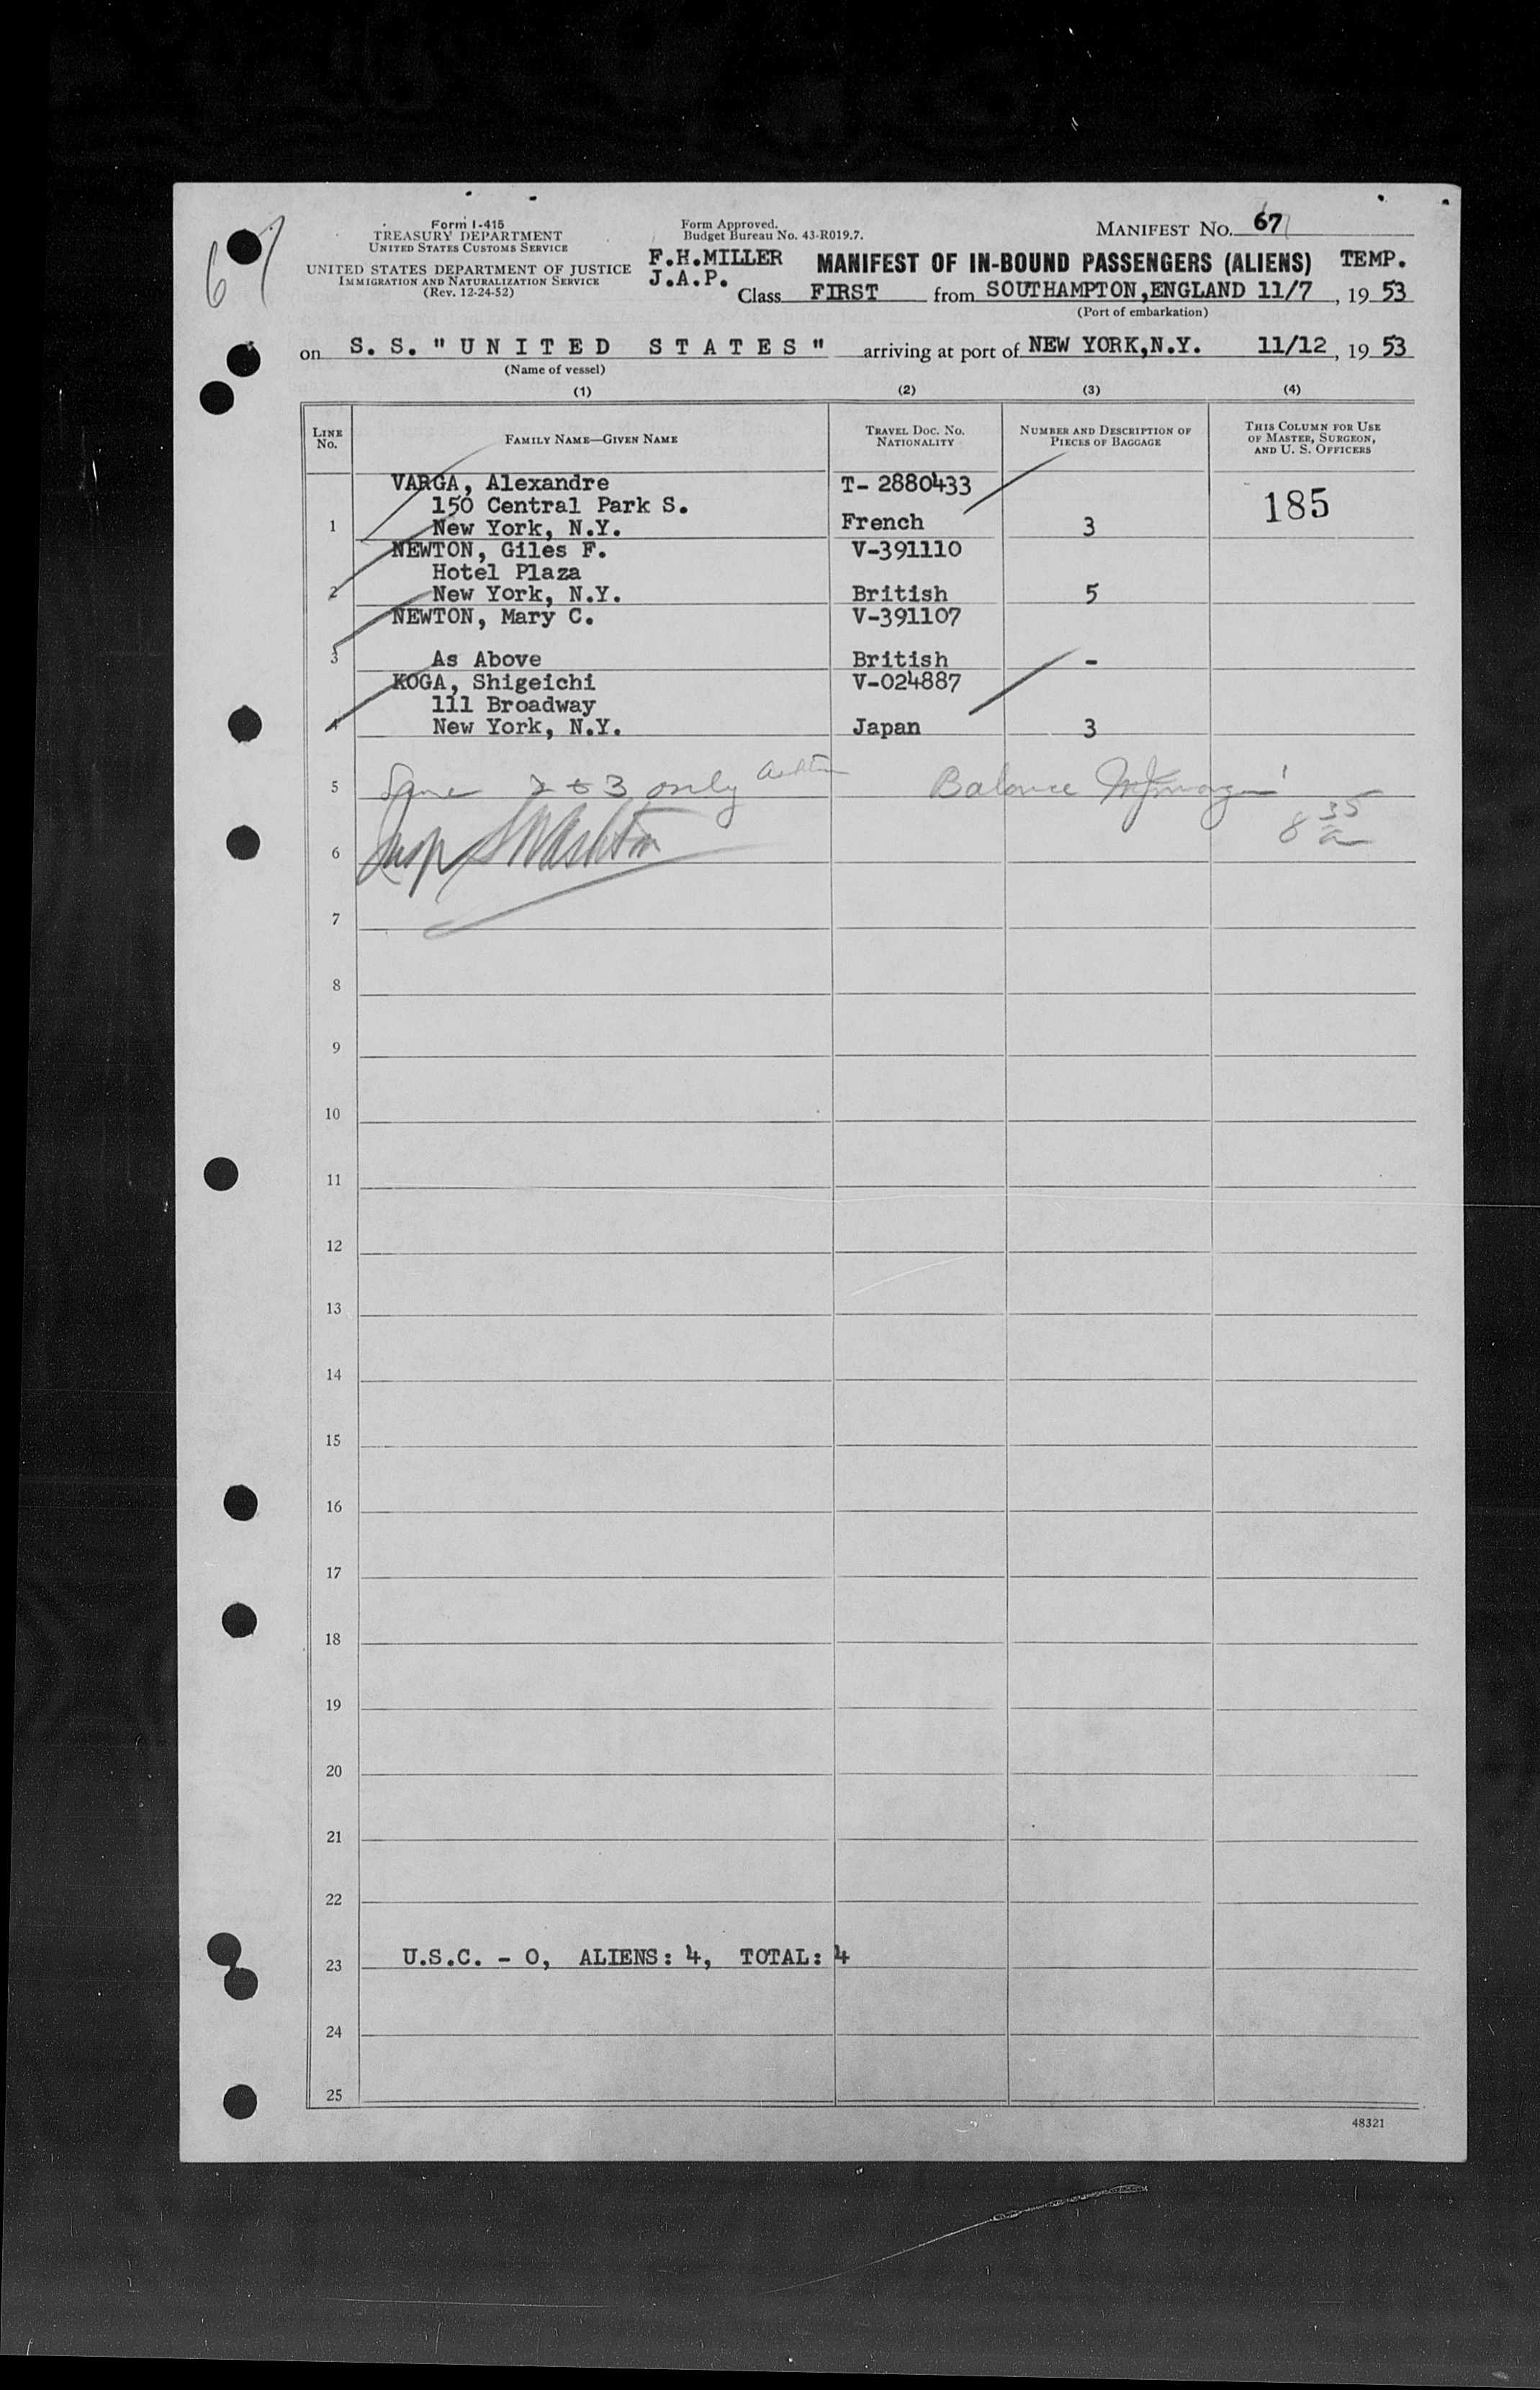 67
Form I-415
TREASURY DEPARTMENT
UNITED STATES CUSTOMS SERVICE
UNITED STATES DEPARTMENT OF JUSTICE
IMMIGRATION AND NATURALIZATION SERVICE
(Rev. 12-24-52)
Form Approved.
Budget Bureau No. 43-R019.7.
MANIFEST NO. 67
F.H.MILLER
J.A.P.
MANIFEST OF IN-BOUND PASSENGERS (ALIENS) TEMP.
Class FIRST from SOUTHAMPTON,ENGLAND 11/7, 19 53
(Port of embarkation)
on S. S. "U N I T E D S T A T E S" arriving at port of NEW YORK,N.Y. 11/12, 19 53
(Name of vessel)
(1) (2) (3) (4)
LINE NO.
FAMILY NAME—GIVEN NAME
TRAVEL DOC. NO.
NATIONALITY
NUMBER AND DESCRIPTION OF
PIECES OF BAGGAGE
THIS COLUMN FOR USE
OF MASTER, SURGEON,
AND U. S. OFFICERS
VARGA, Alexandre T- 2880433
150 Central Park S. 185
1 New York, N.Y. French 3
NEWTON, Giles F. V-391110
Hotel Plaza
2 New York, N.Y. British 5
NEWTON, Mary C. V-391107
3 As Above British -
KOGA, Shigeichi V-024887
111 Broadway
4 New York, N.Y. Japan 3
5 2 & 3 only Ashton Balance
8 35 a
6 Insp Ashton
7
8
9
10
11
12
13
14
15
16
17
18
19
20
21
22
23 U.S.C. - 0, ALIENS: 4, TOTAL: 4
24
25
48321